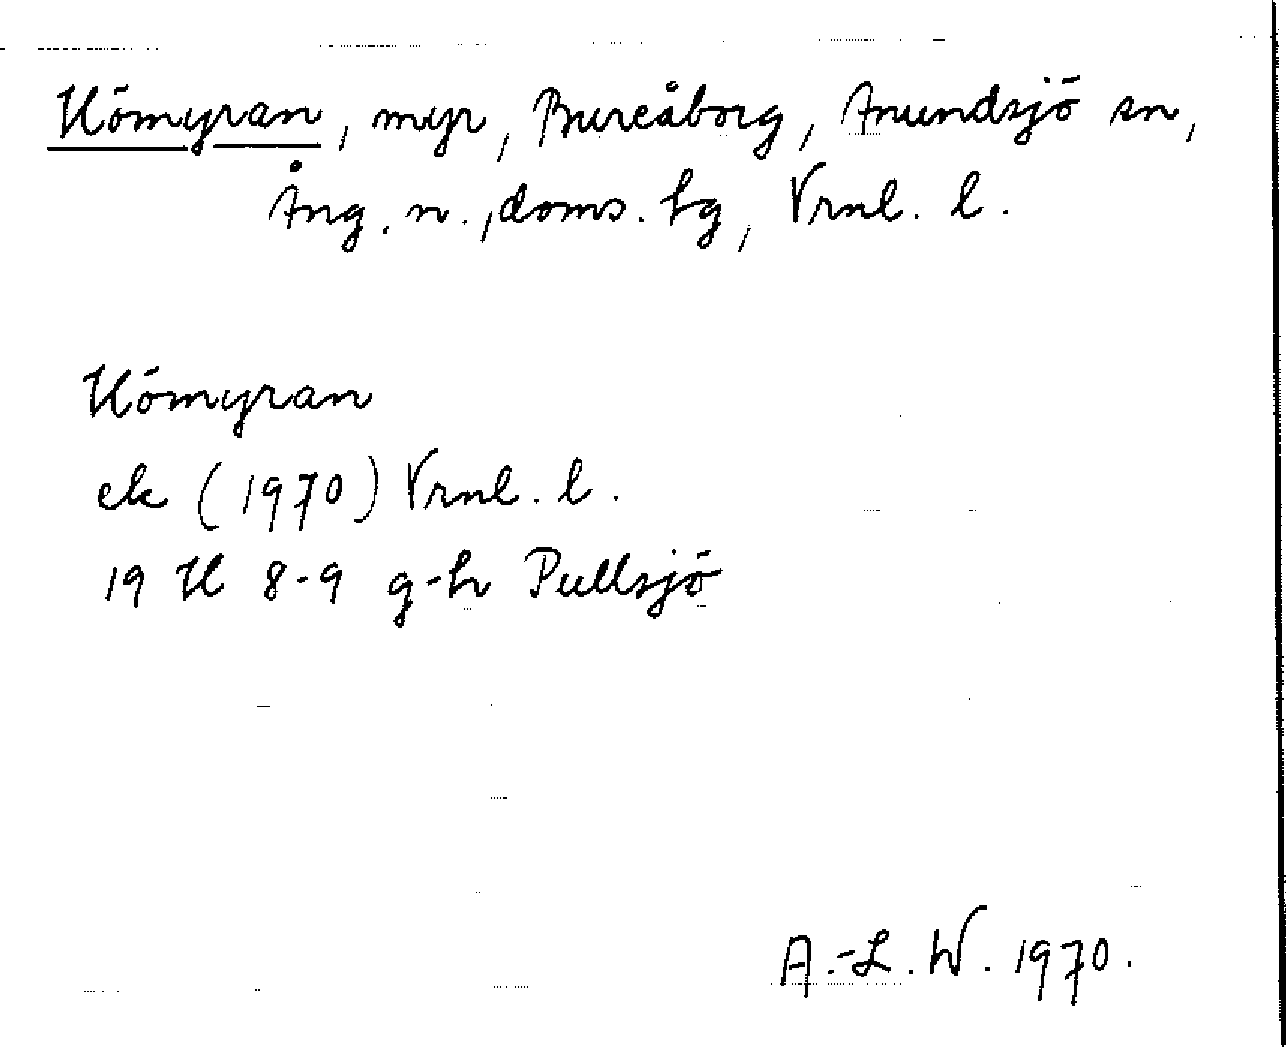 Hömyran, myr, Bureåborg, Anundsjö sn,
Ång. n., doms. hg, Vrnl. l.
Hömyran
ek (1970) Vrnl. l.
19 H 8-9 g-h Pullsjö
A.-L. W. 1970.